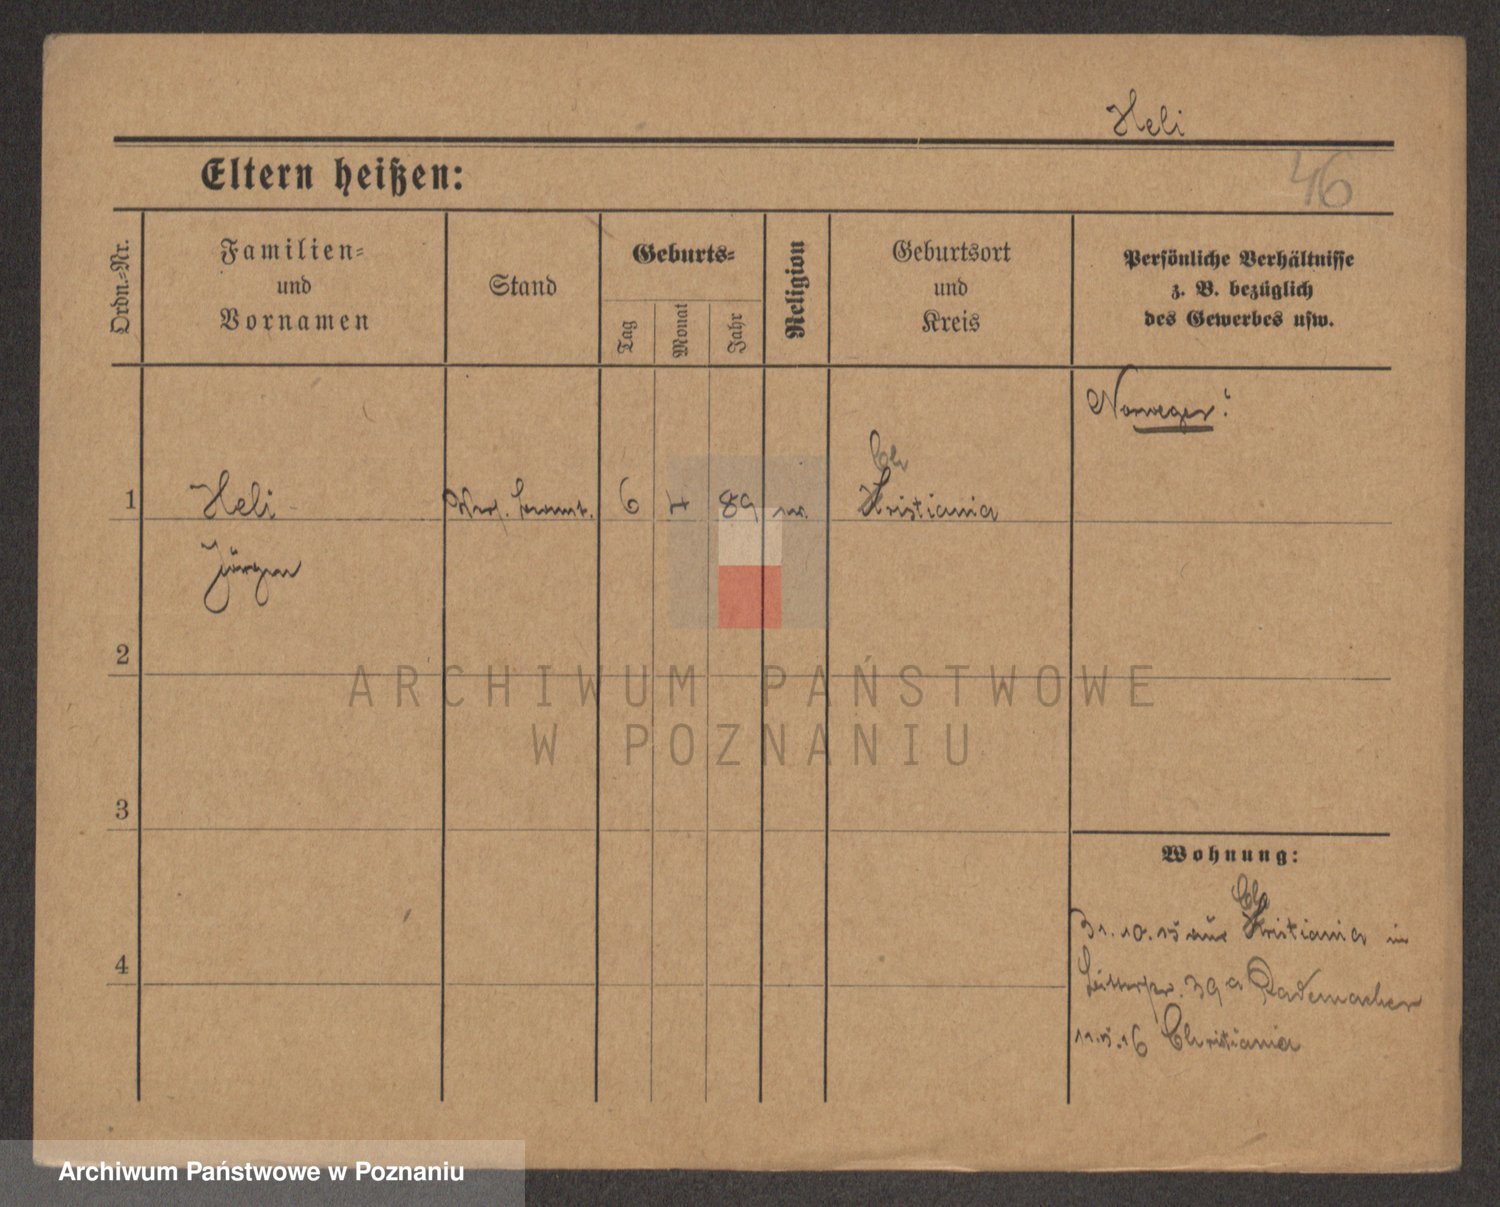 Heli
Eltern heißen:
46
Ordn.-Nr.
Familien-
und
Vornamen
Stand
Geburts-
Tag
Monat
Jahr
Religion
Geburtsort
und
Kreis
Persönliche Verhältnisse
z. B. bezüglich
des Gewerbes usw.
Norweger!
1
Heli
6
4
89
Ch
Kristiania
Jürgen
2
3
4
Wohnung:
Ch
31.10.15 aus Kristiania in
39a Rademacher
11.5.16 Christiania
ARCHIWUM PAŃSTWOWE
W POZNANIU
Archiwum Państwowe w Poznaniu